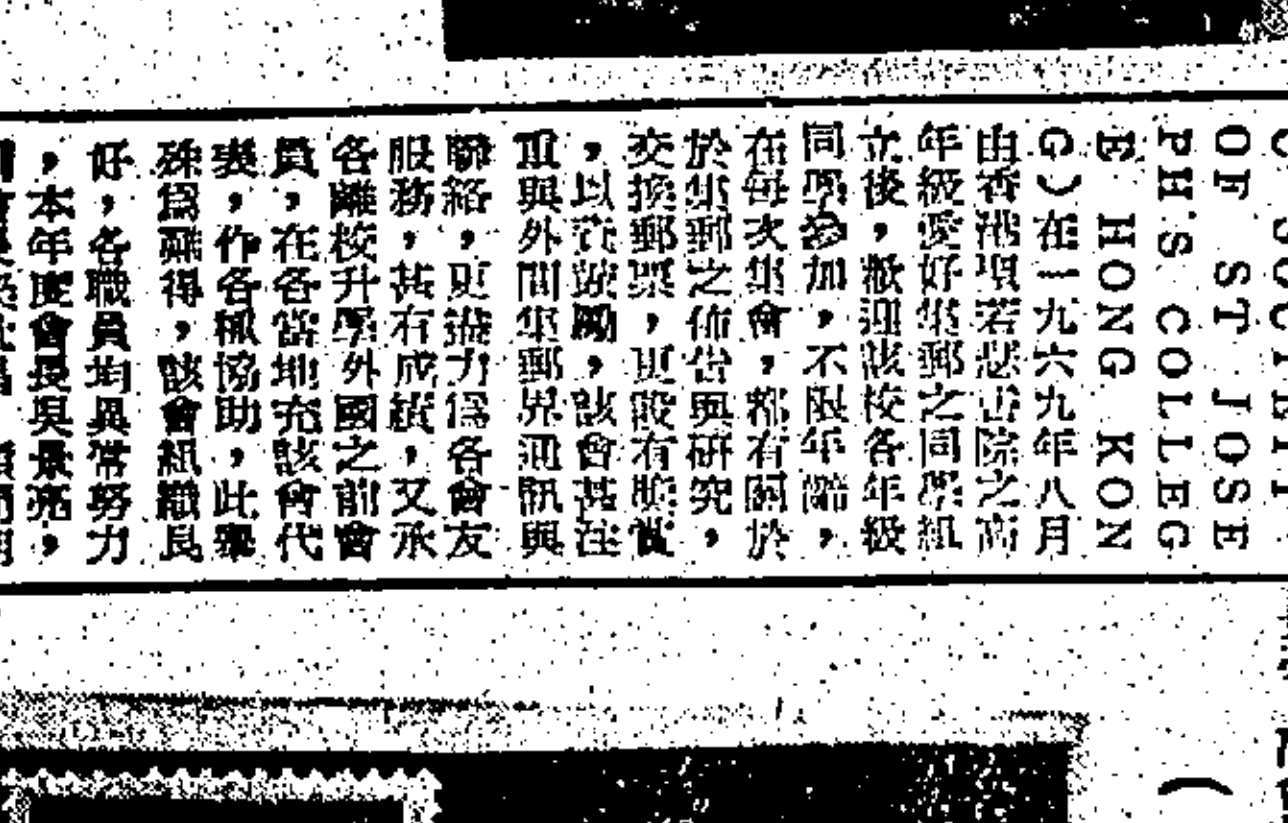 OF ST JOSE
PH'S COLLEG
E HONG KON
G)在一九六九年八月
由香港聖若瑟書院之高
年級愛好集郵之同學組
立後,歡迎該校各年級
同學參加,不限年齡,
在每次集會,都有關於
於集郵之佈告與研究,
交換郵票,更設有
,以資鼓勵,該會甚注
重與外間集郵界通訊與
聯絡,更盡力為各會友
服務,甚有成績,又承
各離校升學外國之前會
員,在各當地充該會代
表,作各種協助,此舉
殊為難得,該會組織良
好,各職員均異常努力
,本年度會長吳景亮,